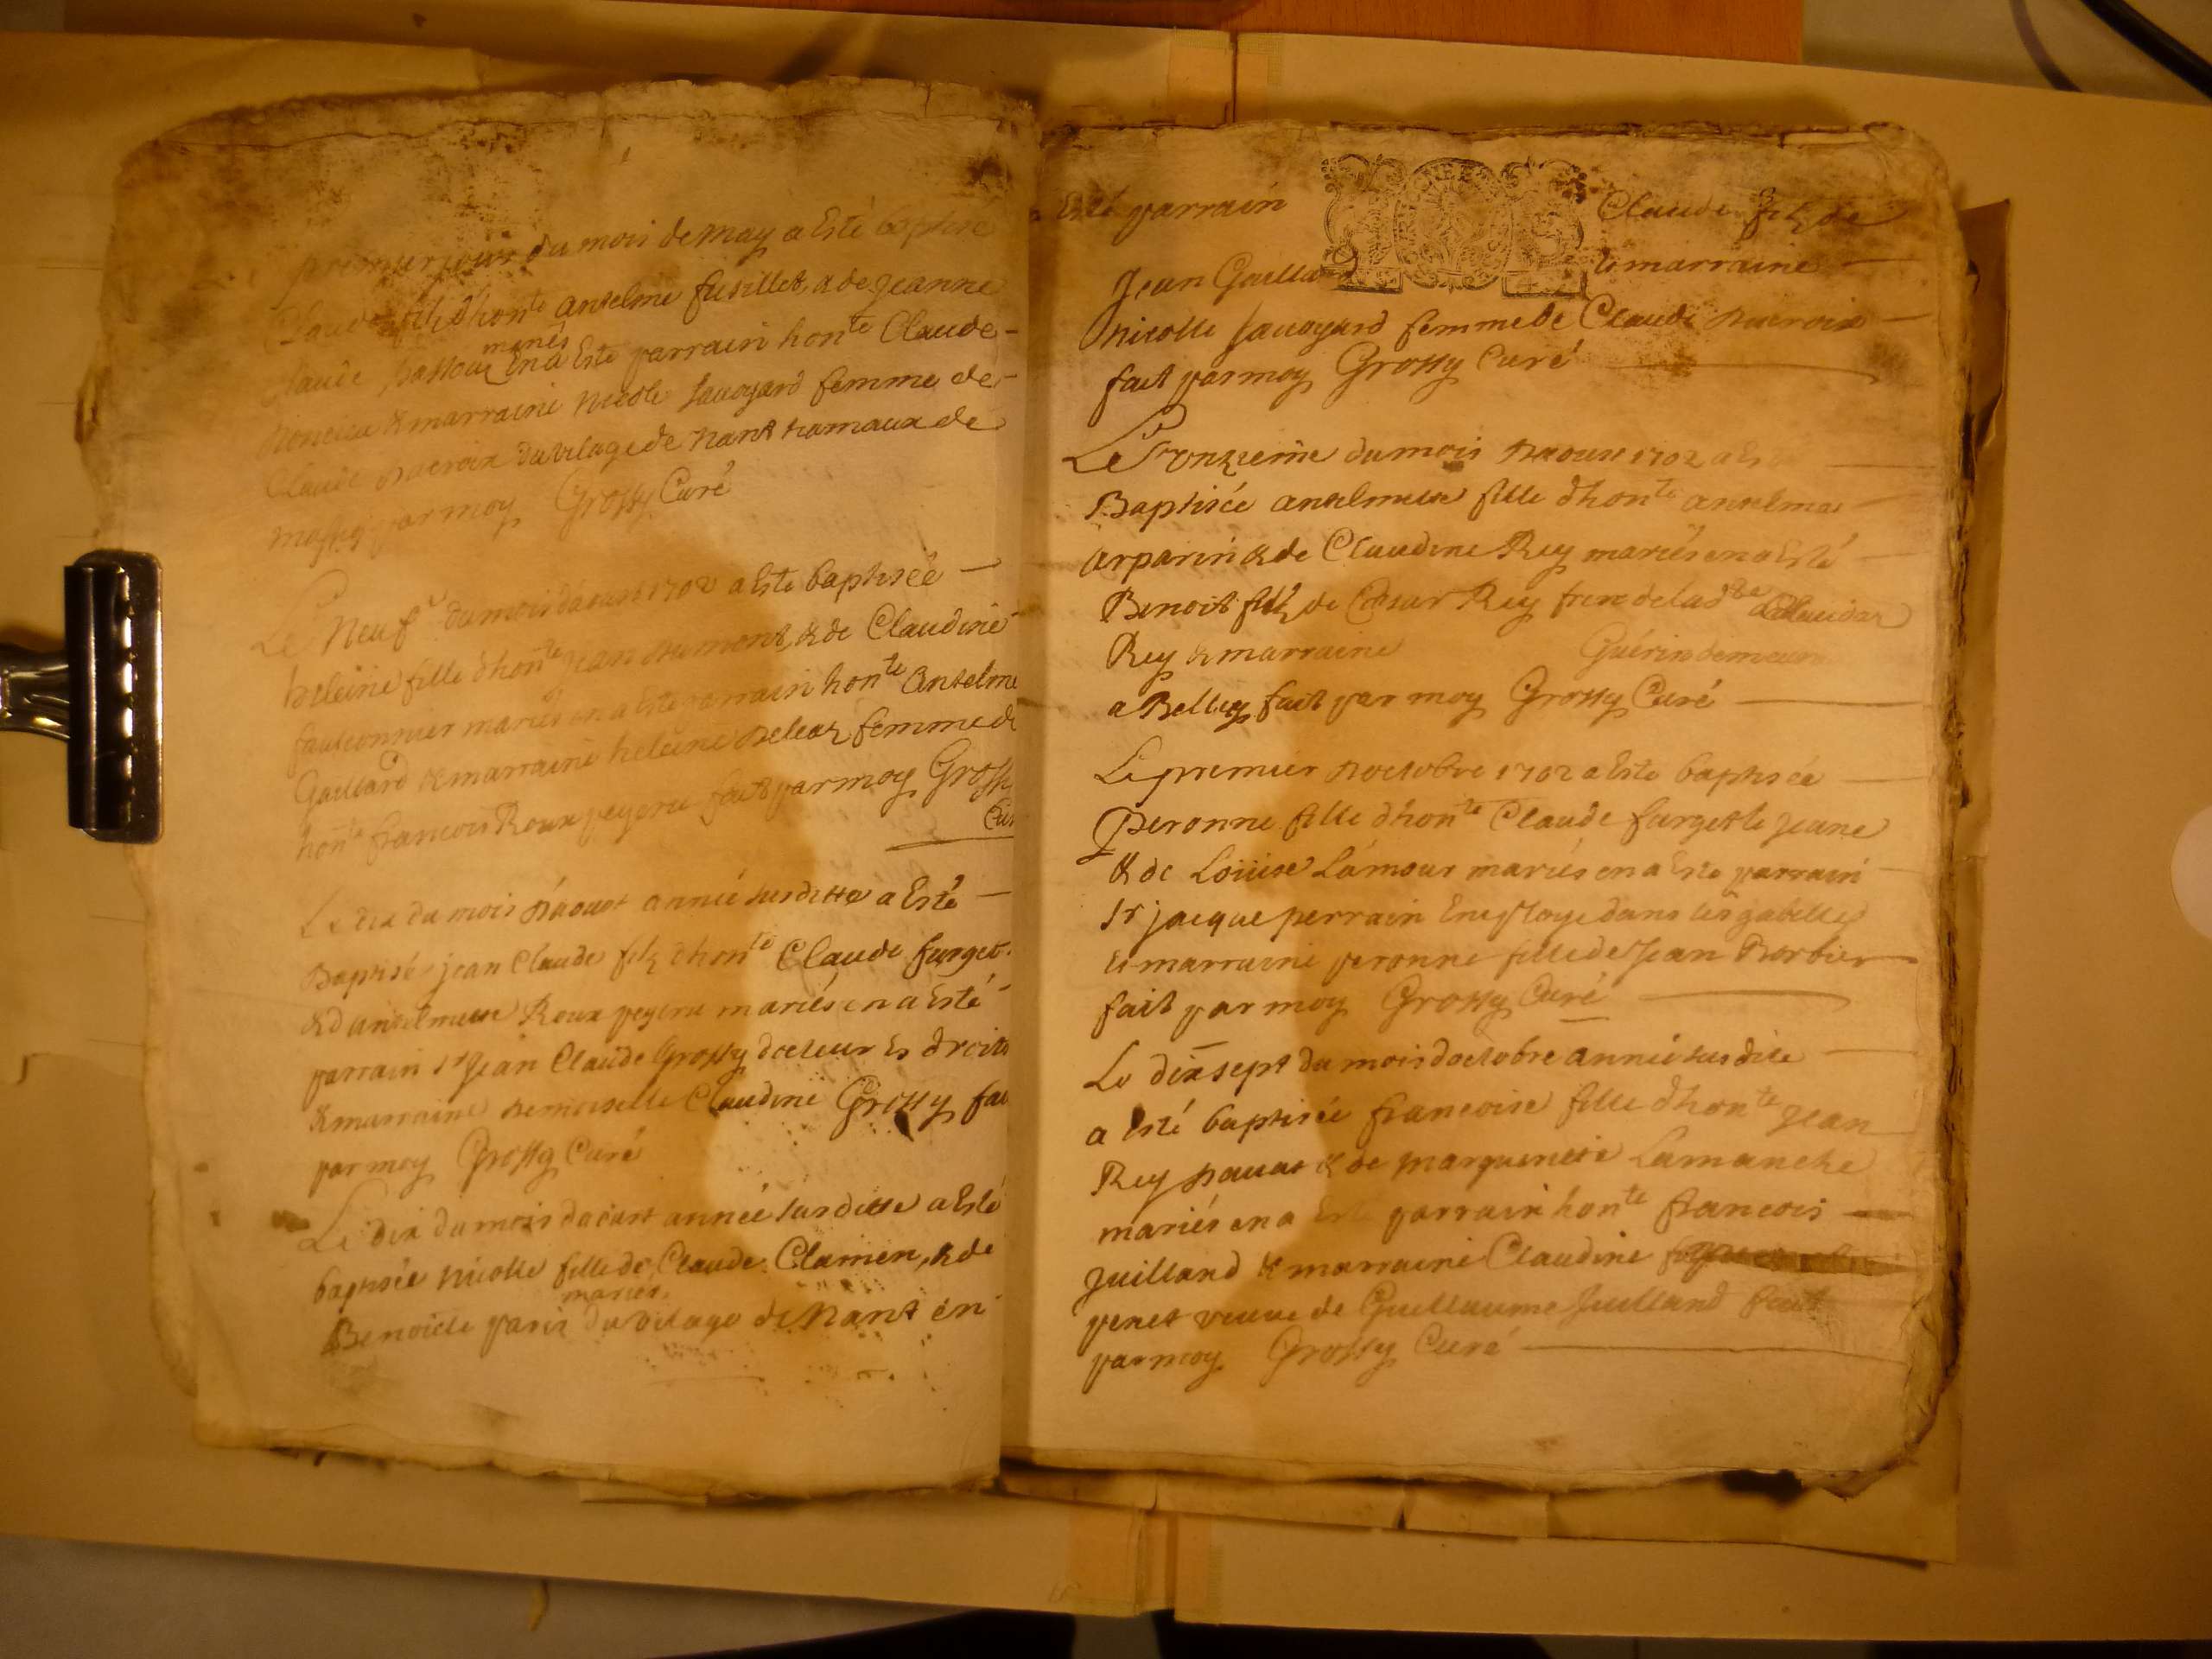 premier jour du mois de may a Esté baptisé
Claude filz d'hon.te antelme fusillet & de Jeanne
mariés
en a Esté parrain hon.te Claude
& marraine nicole sauoyard femme de
Claude du vilage de nant hamaux de
par moy Grossy Curé
Le Neuf.e du mois d'aoust 1702 a Esté baptisée
heleine fille d'hon.te Jean dumont, & de Claudine
fauconnier mariés en a Esté parrain hon.te Antelme
Gaillard & marraine heleine femme de
hon.te francois Roux peyeru fait par moy Grossy
Cur
Le dix du mois d'aoust année susditte a Esté
Baptisé jean Claude filz d'hon.te Claude furget
& d'antelmette Roux peyeru mariés en a Esté
parrain s.r Jean Claude Grossy docteur Es droits
& marraine demoiselle Claudine Grossy fai
par moy Grossy Curé
Le dix du mois d'aoust année susditte a Esté
baptisée nicolle fille de Claude Clamen, & de
mariés
Benoitte paris du vilage de Nant en
Esté parrain Claude filz de
Jean Gaillard & marraine
nicolle sauoyard femme de Claude
fait par moy Grossy Curé
Le onzieme du mois d'aoust 1702 a Esté
Baptisée antelmette fille d'hon.te antelme
arparin & de Claudine Rey mariés en a Esté
Benoit filz de Cesar Rey frere de lad.te
Rey & marraine Guérin demeur
a Belley fait par moy Grossy Curé
Le premier d'octobre 1702 a Esté baptisée
Peronne fille d'hon.te Claude furget le jeane
& de Loüise Lamour mariés en a Esté parrain
s.r jacque perrain Employé dans les gabelles
& marraine peronne fille de Jean Borbier
fait par moy Grossy Curé
Le dixsept du mois d'octobre année susdite
a Esté baptisée francoise fille d'hon.te Jean
Rey pauat & de marguerite Lamanche
mariés en a Esté parrain hon.te francois
Juilland & marraine Claudine
penet veuue de Guillaume Juilland fait
par moy Grossy Curé